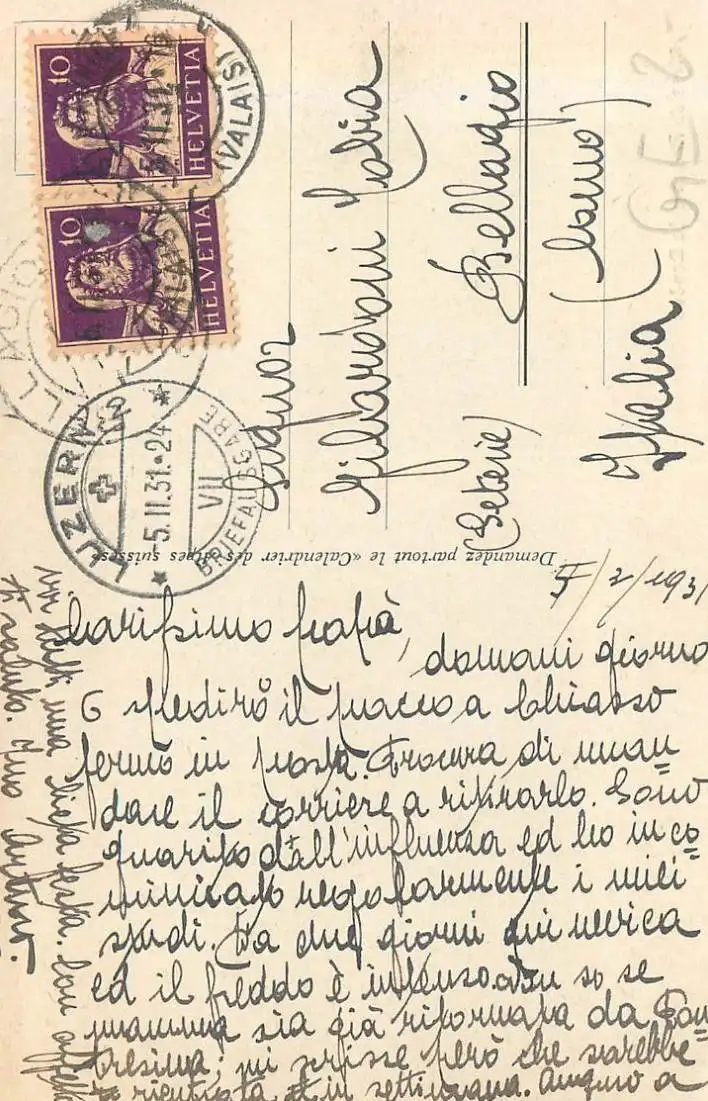 10
HELVETIA
(VALAIS)
10
HELVETIA
LUZERN 2
5.II.31.24
VII
BRIEFAUSGABE
Signor
Gilardoni
Bellagio
(Como)
(Seterie)
Italia
Demandez partout le «Calendrier des Alpes suisses»
5/2/1931
Carissimo papà,
domani giorno
6 spedirò il pacco a Chiasso
fermo in posta. Procura di man=
dare il corriere a ritirarlo. Sono
guarito dall'influenza ed ho inco=
minciato regolarmente i miei
studi. Da due giorni qui nevica
ed il freddo è intenso. Non so se
mamma sia già ritornata da Pon
tresina; mi scrisse però che sarebbe
rientrata in settimana. Auguro a
voi tutti una lieta festa. Con affetto
ti saluto. Tuo